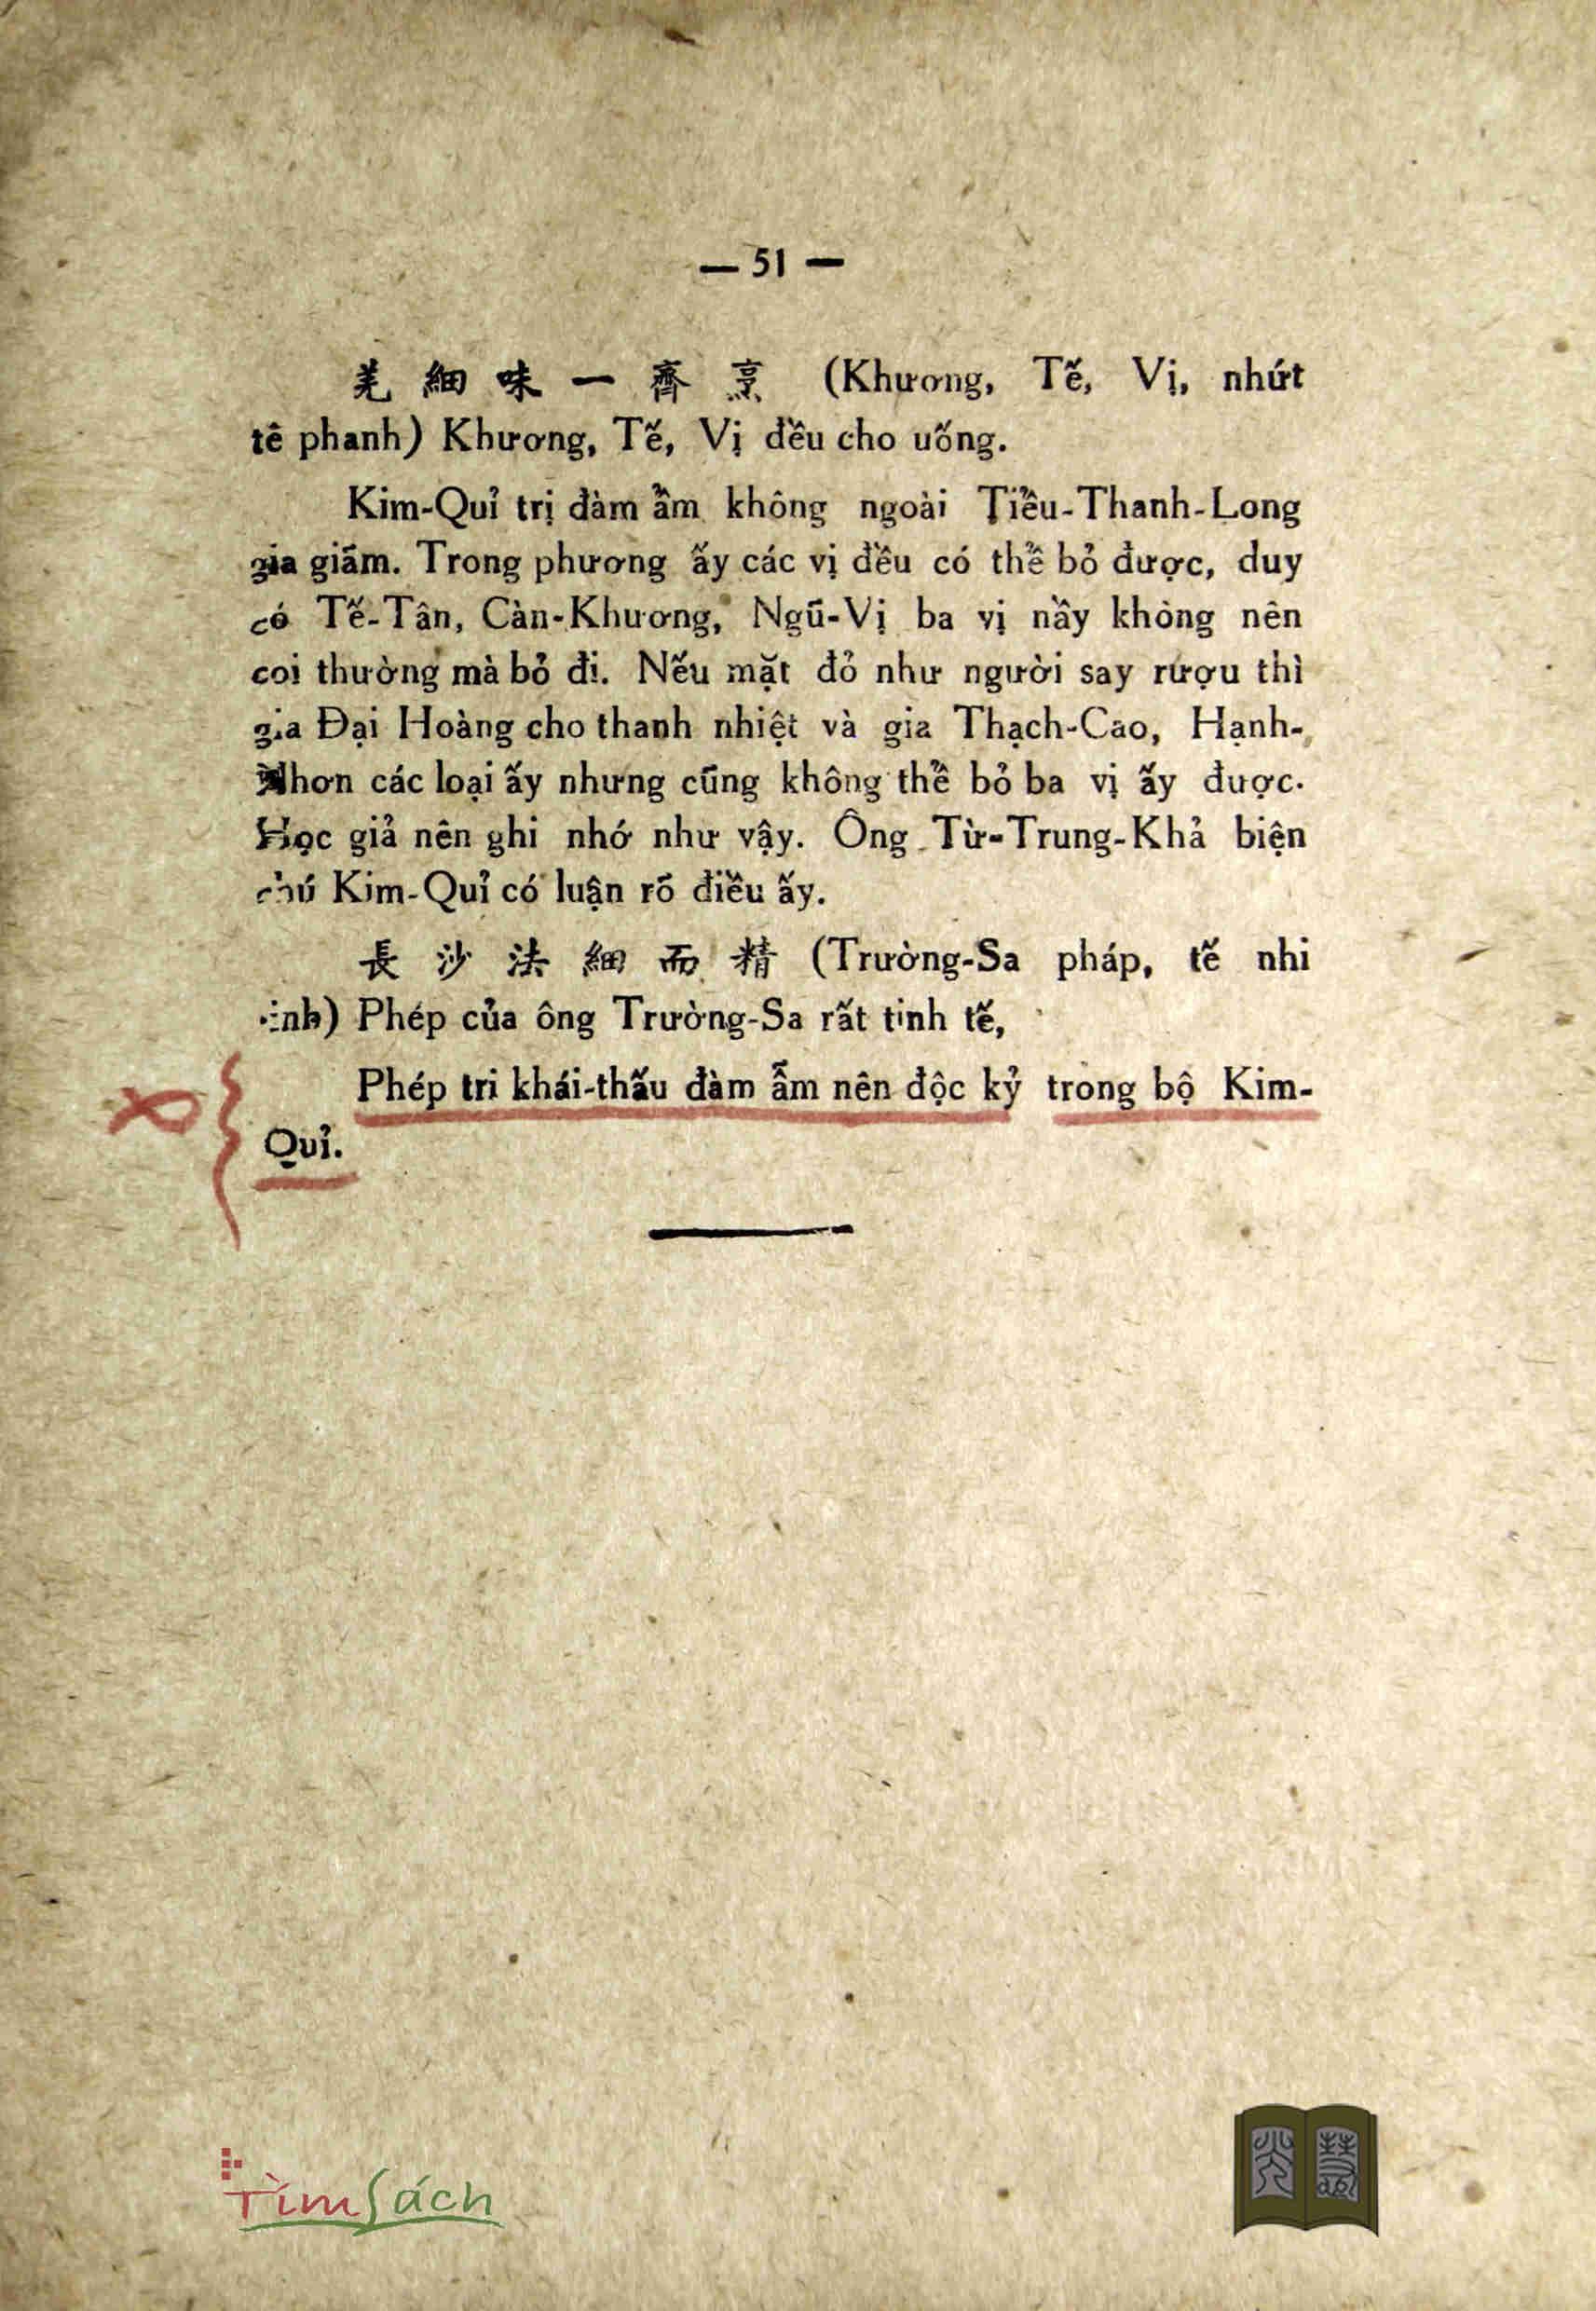 — 51 —
羌 細 味 一 齊 烹 (Khương, Tế, Vị, nhứt
tê phanh) Khương, Tế, Vị đều cho uống.
Kim-Quỉ trị đàm ẩm không ngoài Tiểu-Thanh-Long
gia giãm. Trong phương ấy các vị đều có thể bỏ được, duy
có Tế-Tân, Càn-Khương, Ngũ-Vị ba vị nầy không nên
coi thường mà bỏ đi. Nếu mặt đỏ như người say rượu thì
gia Đại Hoàng cho thanh nhiệt và gia Thạch-Cao, Hạnh-
Nhơn các loại ấy nhưng cũng không thể bỏ ba vị ấy được.
Học giả nên ghi nhớ như vậy. Ông Từ-Trung-Khả biện
chú Kim-Quỉ có luận rõ điều ấy.
長 沙 法 細 而 精 (Trường-Sa pháp, tế nhi
inh) Phép của ông Trường-Sa rất tinh tế,
Phép tri khái-thấu đàm ẫm nên độc kỷ trong bộ Kim-
Quỉ.
TìmSách